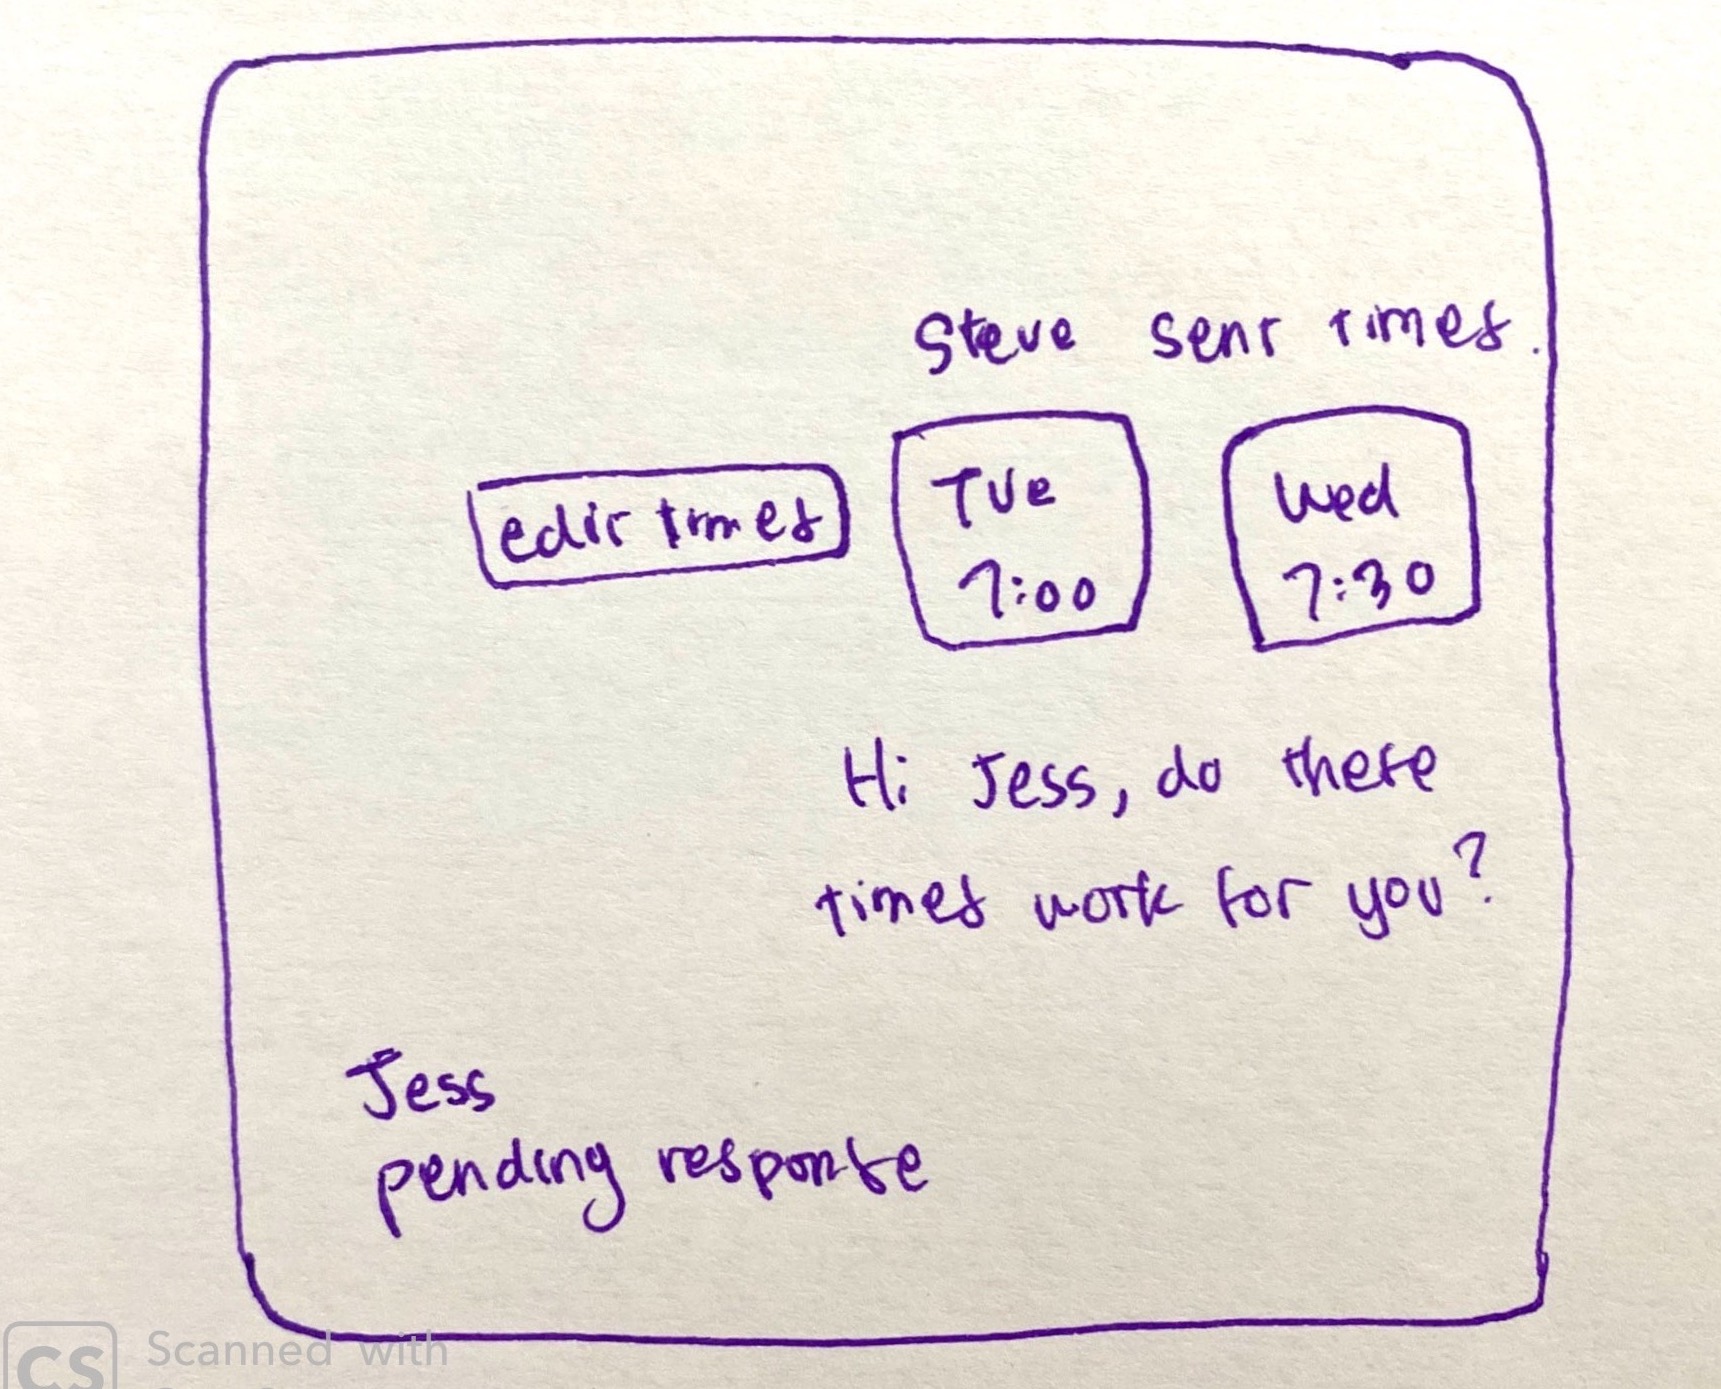 Steve sent times.
edit times
Tue
7:00
Wed
7:30
Hi Jess, do these
times work for you?
Jess
pending response
CS Scanned with